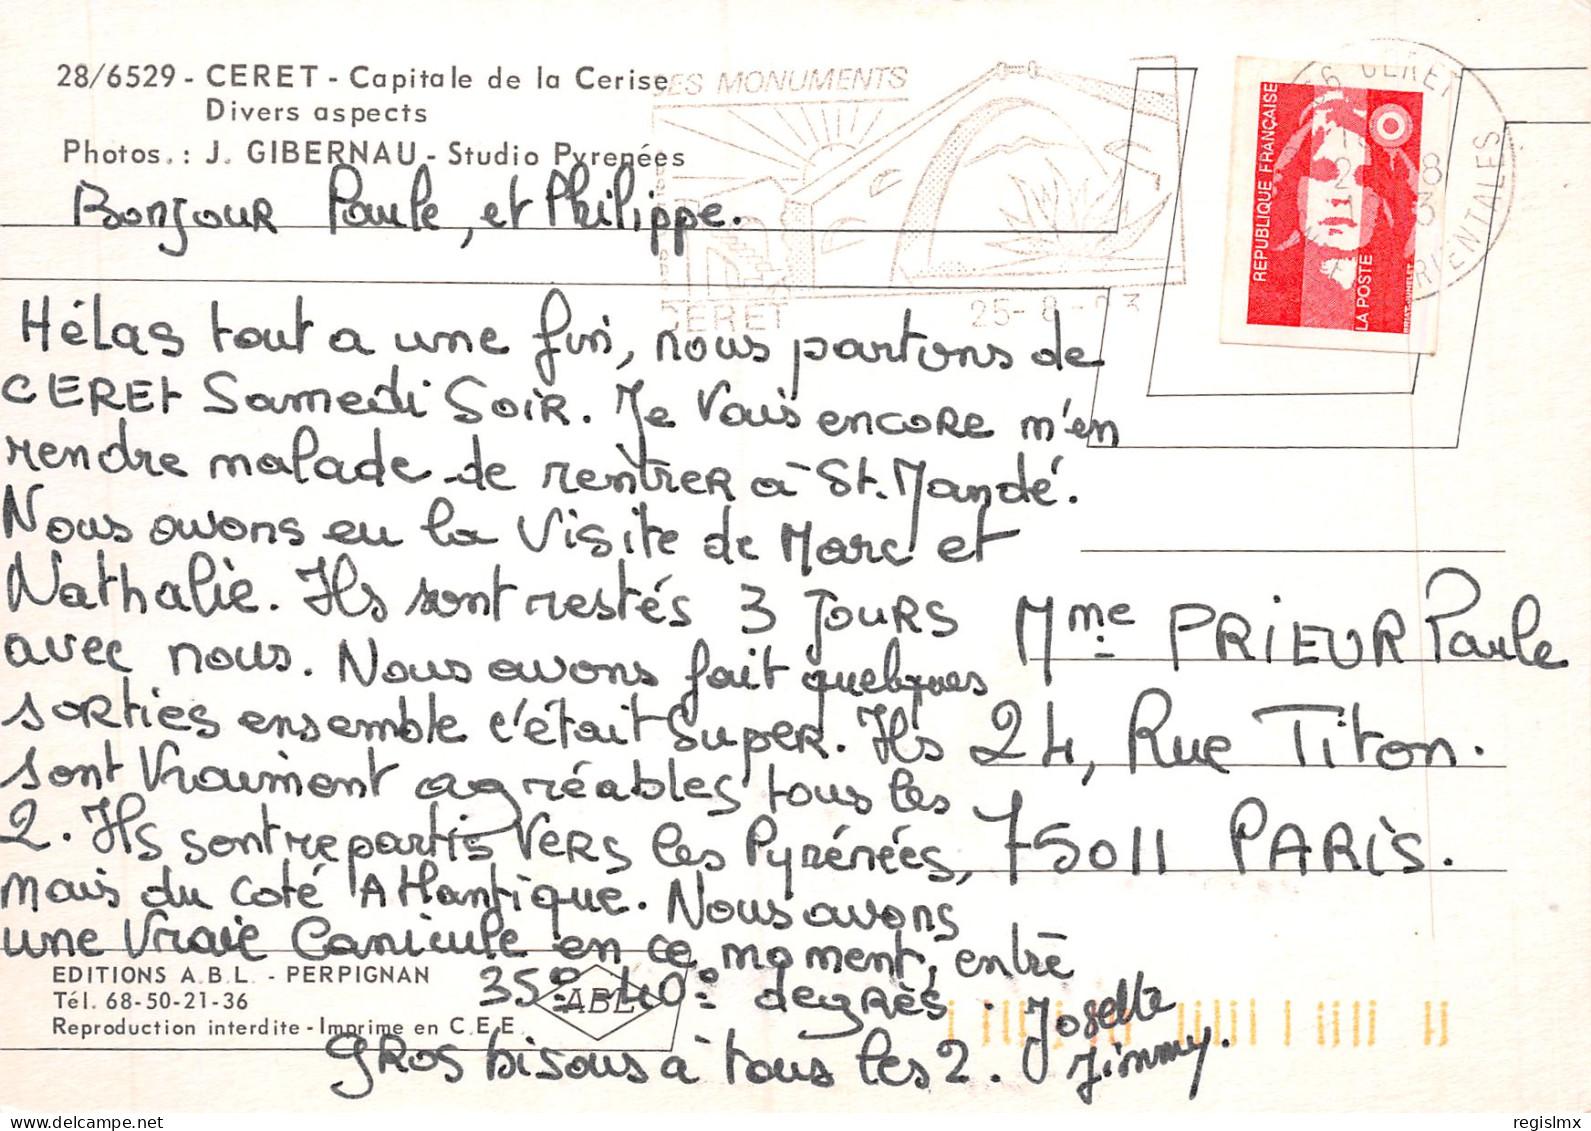 28/6529 - CERET - Capitale de la Cerise
Divers aspects
Photos. : J. GIBERNAU - Studio Pyrenées
ES MONUMENTS
CERET
25-8-93
66 CERET
ORIENTALES
REPUBLIQUE FRANÇAISE
LA POSTE
Bonjour Paule, et Philippe.
Hélas tout a une fin, nous partons de
CERET Samedi Soir. Je Vais encore m'en
rendre malade de rentrer à St. Mandé.
Nous avons eu la Visite de Marc et
Nathalie. Ils sont restés 3 jours
avec nous. Nous avons fait quelques
sorties ensemble c'était Super. Ils
sont Vraiment agréables tous les
2. Ils sont repartis Vers les Pyrénées,
mais du coté Atlantique. Nous avons
une Vraie Canicule en ce moment, entre
35° 40° degrés.
Gros bisous à tous les 2. Josette
Jimmy.
Mme PRIEUR Paule
24, Rue Titon.
75011 PARIS.
EDITIONS A.B.L. - PERPIGNAN
Tél. 68-50-21-36
Reproduction interdite - Imprime en C.E.E.
ABL
regislmx